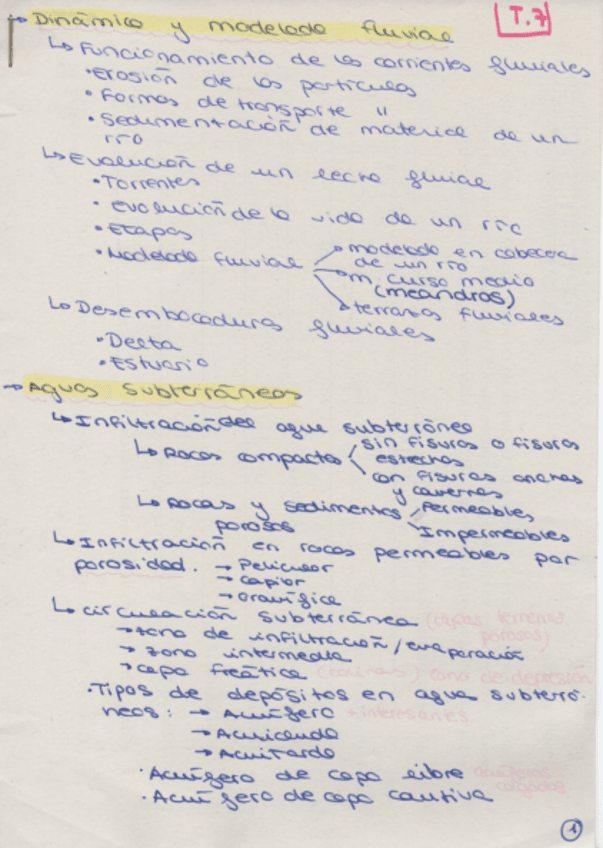 T.7
→ Dinámica y modelado fluvial
↳ Funcionamiento de las corrientes fluviales
• Erosión de las partículas
• Formas de transporte "
• Sedimentación de material de un
río
↳ Evolución de un lecho fluvial
• Torrentes
• evolución de la vida de un río
• Etapas
• Modelado fluvial → modelado en cabecera
de un río
→ m. curso medio
(meandros)
→ terrazas fluviales
↳ Desembocaduras fluviales
• Delta
• Estuario
→ Aguas Subterráneas
↳ Infiltración del agua subterránea
↳ Rocas compactas sin fisuras o fisuras
estrechas
con fisuras anchas
y cavernas
↳ Rocas y sedimentos Permeables
porosos Impermeables
↳ Infiltración en rocas permeables por
porosidad. → Pelicular
→ Capilar
→ Gravífica
↳ Circulación subterránea (capas terrenos
porosos)
→ zona de infiltración/evaporación
→ zona intermedia
→ capa freática cono de depresión
• Tipos de depósitos en agua subterrá-
neas: → Acuífero + interesantes
→ Acuicludo
→ Acuitardo
• Acuífero de capa libre acuíferos
colgados
• Acuífero de capa cautiva
1